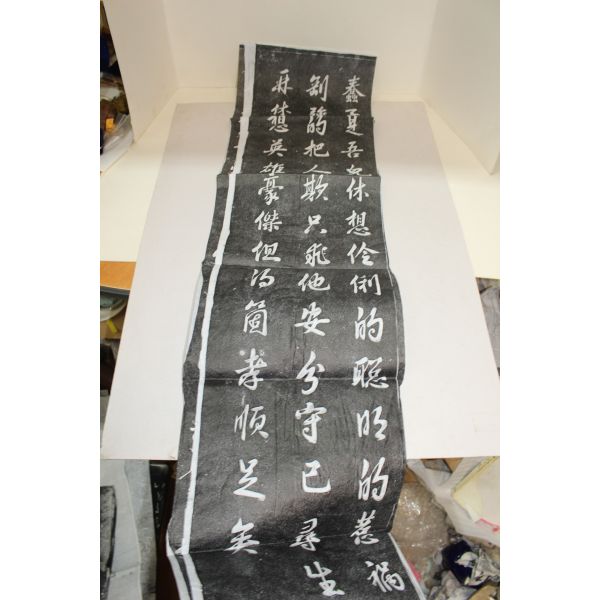 蠢夏吾休想伶俐的聰明的惹禍
把人欺只他安分守己尋生
英雄豪傑但得箇孝順足矣